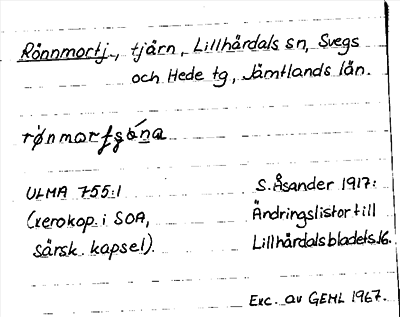 Rönnmortj., tjärn, Lillhärdals sn, Svegs
och Hede tg, Jämtlands län.
ULMA 755:1
(xerokop. i SOA,
särsk. kapsel).
S. Åsander 1917:
Ändringslistor till
Lillhärdalsbladet s. 16.
Exc. av GEHL 1967.